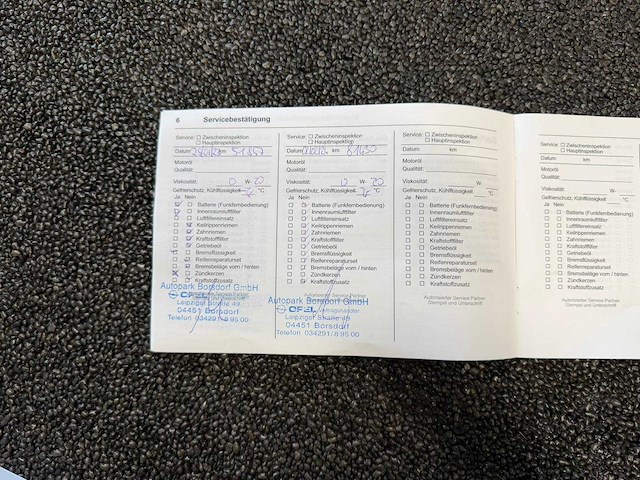 6 Servicebestätigung
Service: Zwischeninspektion
Hauptinspektion
Datum km
Motoröl
Qualität:
Viskosität: 0 W- 20
Gefrierschutz, Kühlflüssigkeit °C
Ja Nein
Batterie (Funkfernbedienung)
Innenraumluftfilter
Luftfiltereinsatz
Keilrippenriemen
Zahnriemen
Kraftstofffilter
Getriebeöl
Bremsflüssigkeit
Reifenreparaturset
Bremsbeläge vorn / hinten
Zündkerzen
Kraftstoffzusatz
Autopark Borsdorf GmbH
Leipziger Straße 49
04451 Borsdorf
Telefon 034291/8 95 00
Service: Zwischeninspektion
Hauptinspektion
Datum km 81430
Motoröl
Qualität:
Viskosität: 0 W- 20
Gefrierschutz, Kühlflüssigkeit °C
Ja Nein
Batterie (Funkfernbedienung)
Innenraumluftfilter
Luftfiltereinsatz
Keilrippenriemen
Zahnriemen
Kraftstofffilter
Getriebeöl
Bremsflüssigkeit
Reifenreparaturset
Bremsbeläge vorn / hinten
Zündkerzen
Kraftstoffzusatz
Autopark Borsdorf GmbH
Leipziger Straße 49
04451 Borsdorf
Telefon 034291/8 95 00
Service: Zwischeninspektion
Hauptinspektion
Datum km
Motoröl
Qualität:
Viskosität: W-
Gefrierschutz, Kühlflüssigkeit °C
Ja Nein
Batterie (Funkfernbedienung)
Innenraumluftfilter
Luftfiltereinsatz
Keilrippenriemen
Zahnriemen
Kraftstofffilter
Getriebeöl
Bremsflüssigkeit
Reifenreparaturset
Bremsbeläge vorn / hinten
Zündkerzen
Kraftstoffzusatz
Autorisierter Service Partner
Stempel und Unterschrift
Service: Zwischeninspektion
Hauptinspektion
Datum km
Motoröl
Qualität:
Viskosität: W-
Gefrierschutz, Kühlflüssigkeit °C
Ja Nein
Batterie (Funkfernbedienung)
Innenraumluftfilter
Luftfiltereinsatz
Keilrippenriemen
Zahnriemen
Kraftstofffilter
Getriebeöl
Bremsflüssigkeit
Reifenreparaturset
Bremsbeläge vorn / hinten
Zündkerzen
Kraftstoffzusatz
Autorisierter Service Partner
Stempel und Unterschrift